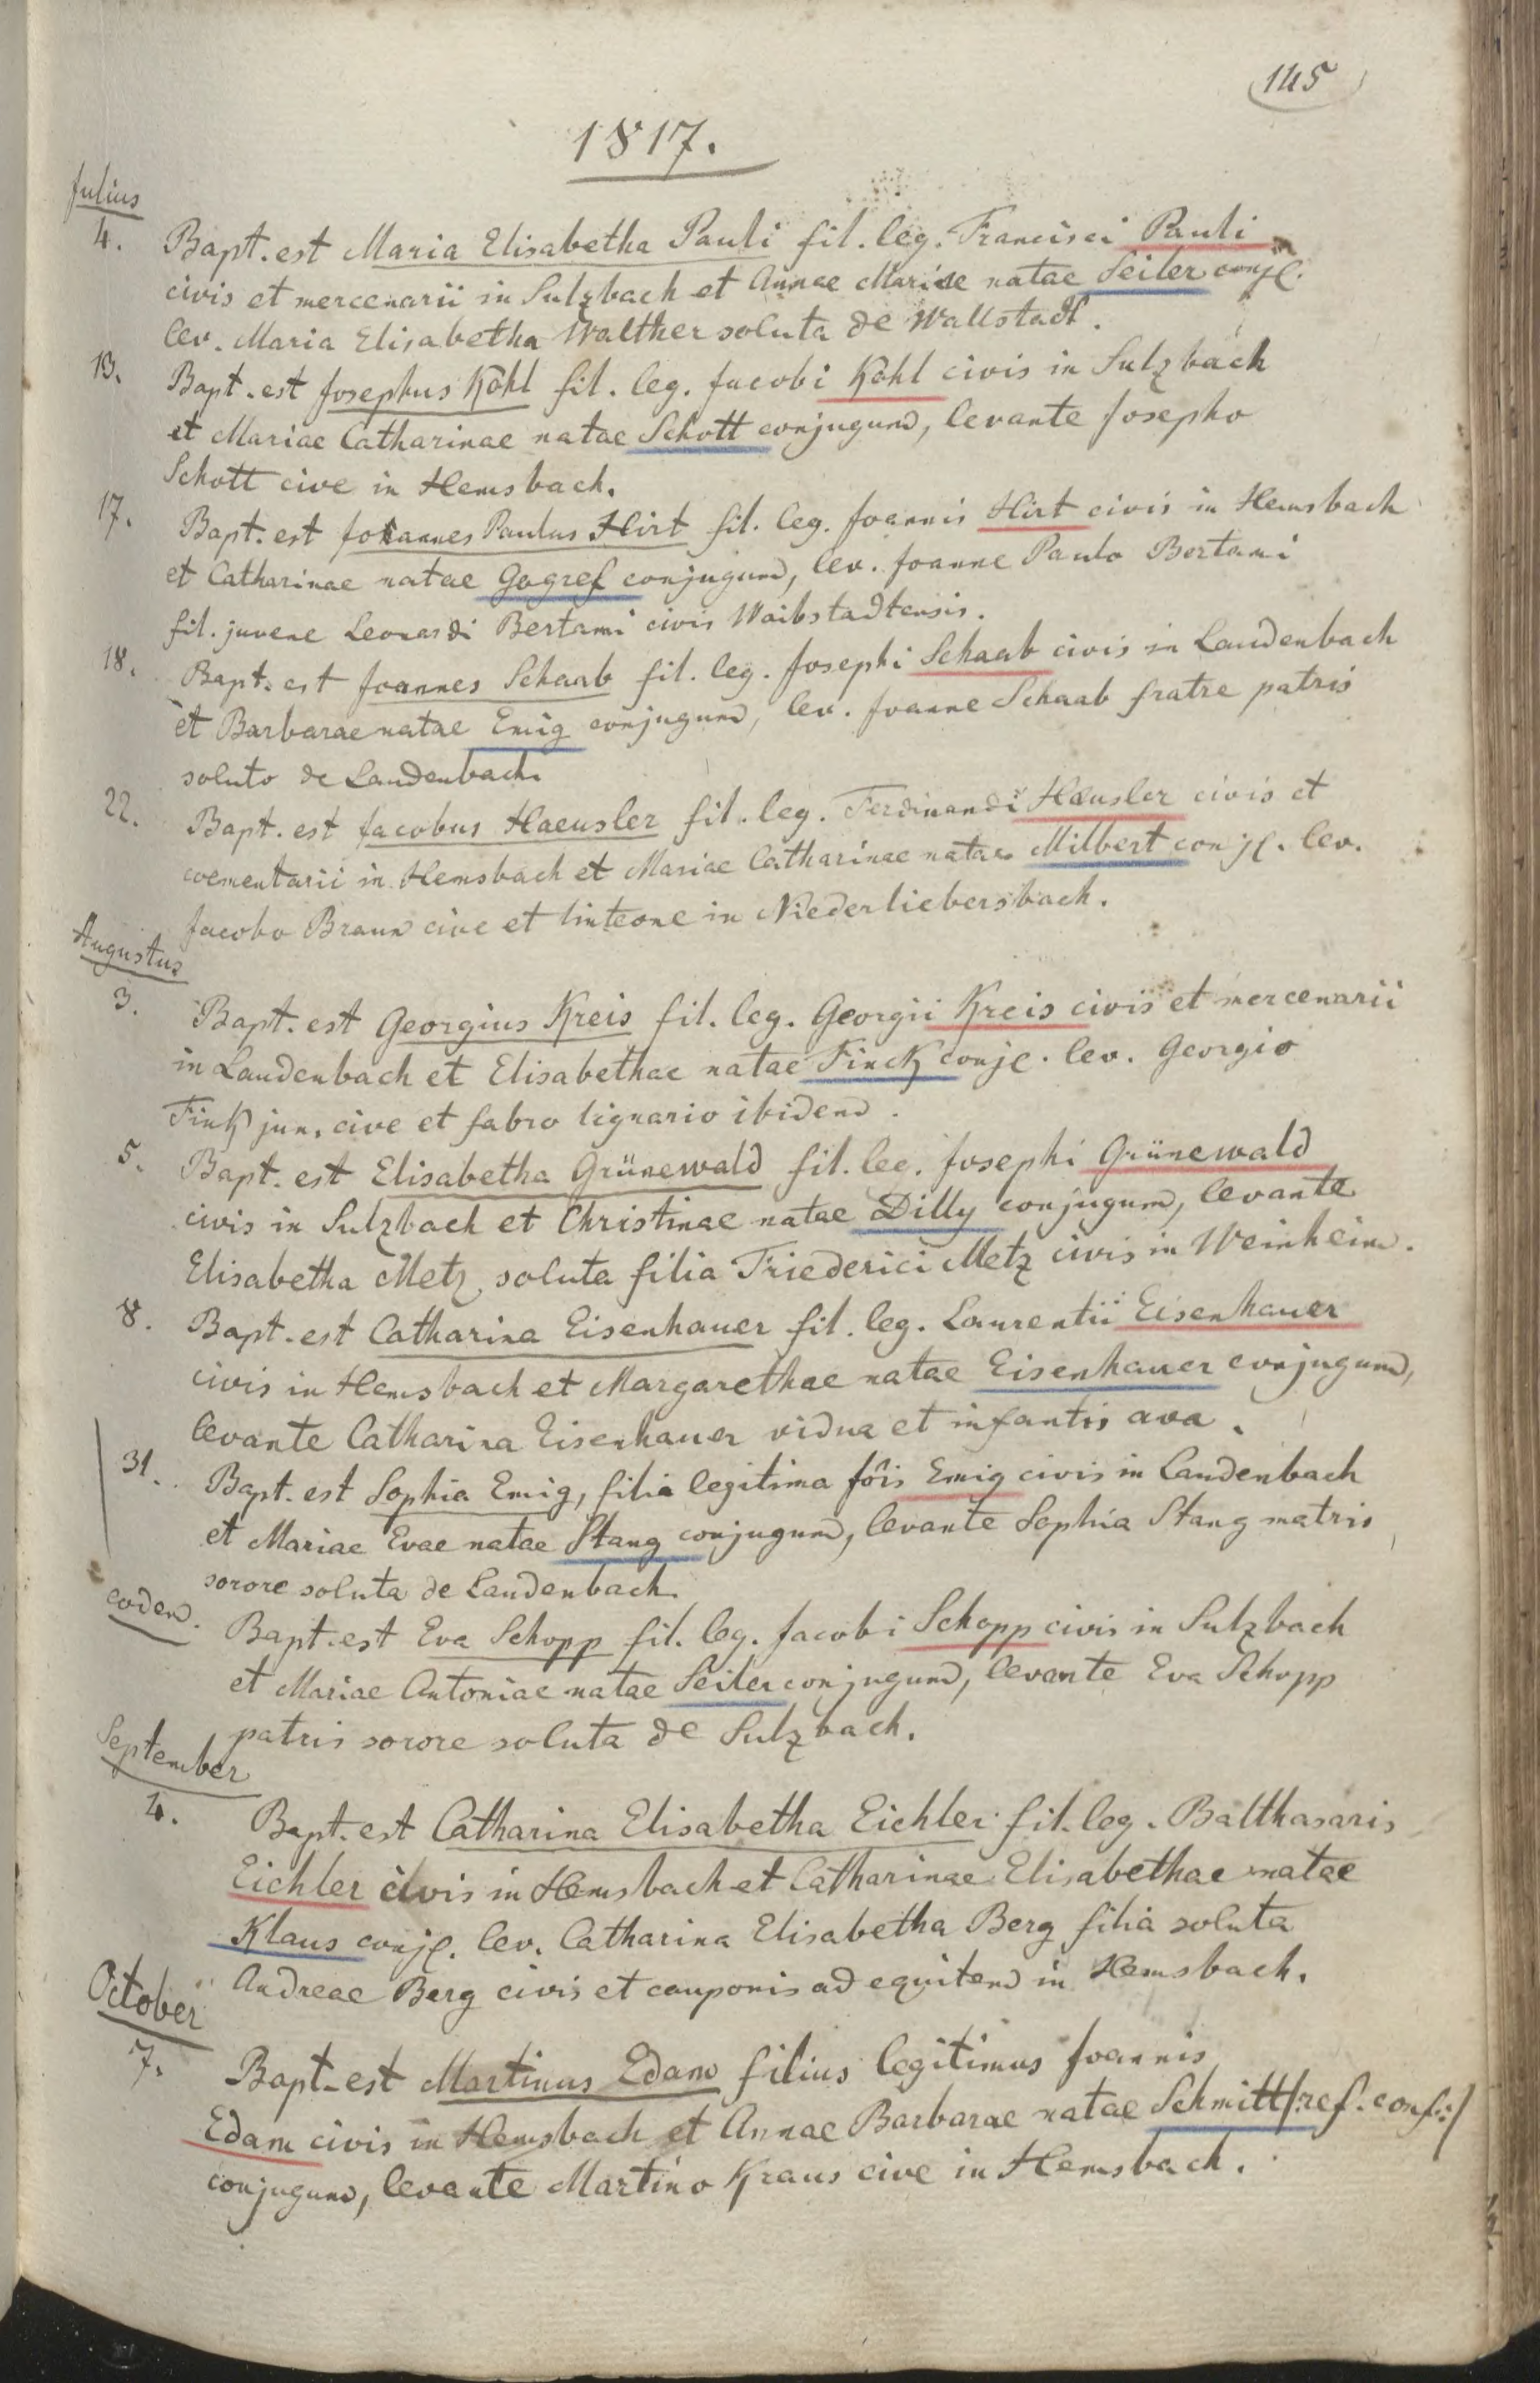 145
1817.
Julius
4. Bapt. est Maria Elisabetha Pauli fil. leg. Francisci Pauli
civis et mercenarii in Sulzbach et Annae Mariae natae Seiler conjl.
lev. Maria Elisabetha Walther soluta de Wallstadt.
13. Bapt. est Josephus Kohl fil. leg. Jacobi Kohl civis in Sulzbach
et Mariae Catharinae natae Schott conjugum, levante Josepho
Schott cive in Hemsbach.
17. Bapt. est Johannes Paulus Hirt fil. leg. Joannis Hirt civis in Hemsbach
et Catharinae natae Gogref conjugum, lev. Joanne Paulo Bertami
fil. juvene Leonardi Bertami civis Waibstadtensis.
18. Bapt. est Joannes Schaab fil. leg. Josephi Schaab civis in Laudenbach
et Barbarae natae Emig conjugum, lev. Joanne Schaab fratre patris
soluto de Laudenbach.
22. Bapt. est Jacobus Haeusler fil. leg. Ferdinandi Haeusler civis et
coementarii in Hemsbach et Mariae Catharinae natae Milbert conjl. lev.
Jacobo Braun cive et linteone in Niederliebersbach.
Augustus
3. Bapt. est Georgius Kreis fil. leg. Georgii Kreis civis et mercenarii
in Laudenbach et Elisabethae natae Finck conjl. lev. Georgio
Fink jun. cive et fabro lignario ibidem.
5. Bapt. est Elisabetha Grünewald fil. leg. Josephi Grünewald
civis in Sulzbach et Christinae natae Dilly conjugum, levante
Elisabetha Metz, soluta filia Friederici Metz civis in Weinheim.
8. Bapt. est Catharina Eisenhauer fil. leg. Laurentii Eisenhauer
civis in Hemsbach et Margarethae natae Eisenhauer conjugum,
levante Catharina Eisenhauer vidua et infantis ava.
31. Bapt. est Sophia Emig, filia legitima Jôis Emig civis in Laudenbach
et Mariae Evae natae Stang conjugum, levante Sophia Stang matris
sorore soluta de Laudenbach.
eodem. Bapt. est Eva Schopp fil. leg. Jacobi Schopp civis in Sulzbach
et Mariae Antoniae natae Seiler conjugum, levante Eva Schopp
patris sorore soluta de Sulzbach.
September
4. Bapt. est Catharina Elisabetha Eichler fil. leg. Balthasaris
Eichler civis in Hemsbach et Catharinae Elisabethae natae
Klaus conjl. lev. Catharina Elisabetha Berg filia soluta
Andreae Berg civis et cauponis ad equitem in Hemsbach.
October
7. Bapt. est Martinus Edam filius legitimus Joannis
Edam civis in Hemsbach et Annae Barbarae natae Schmitt /:ref. conf:/
conjugum, levante Martino Kraus cive in Hemsbach.